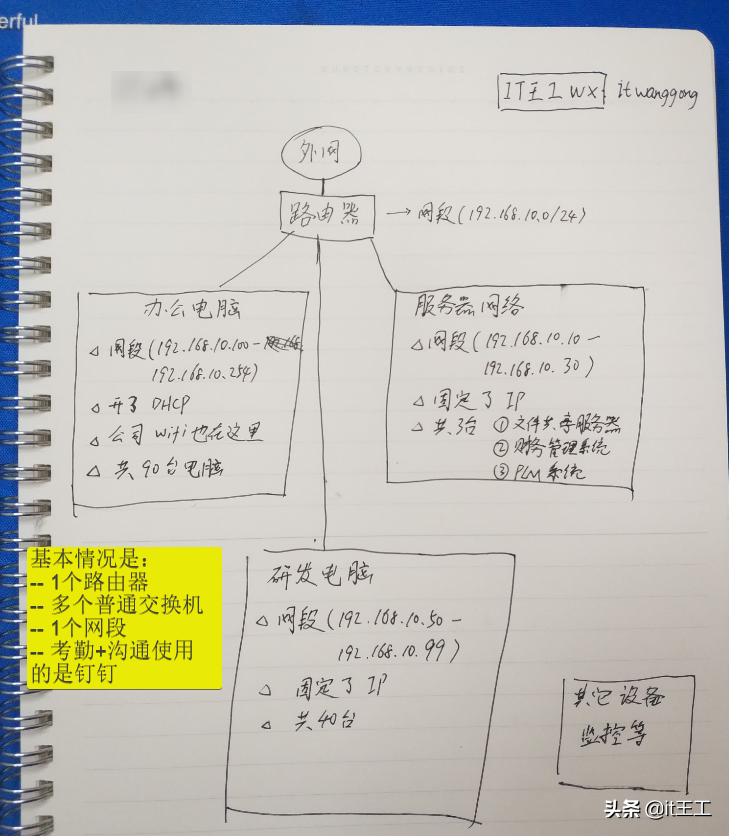 erful
IT王工 wx: itwanggong
外网
路由器 → 网段(192.168.10.0/24)
办公电脑
△ 网段(192.168.10.100-
192.168.10.254)
△ 开了 DHCP
△ 公司 wifi 也在这里
△ 共90台电脑
服务器网络
△ 网段(192.168.10.10-
192.168.10.30)
△ 固定了IP
△ 共3台 ① 文件共享服务器
② 财务管理系统
③ PLM系统
基本情况是:
-- 1个路由器
-- 多个普通交换机
-- 1个网段
-- 考勤+沟通使用
的是钉钉
研发电脑
△ 网段(192.168.10.50-
192.168.10.99)
△ 固定了IP
△ 共40台
其它设备
监控等
头条 @it王工